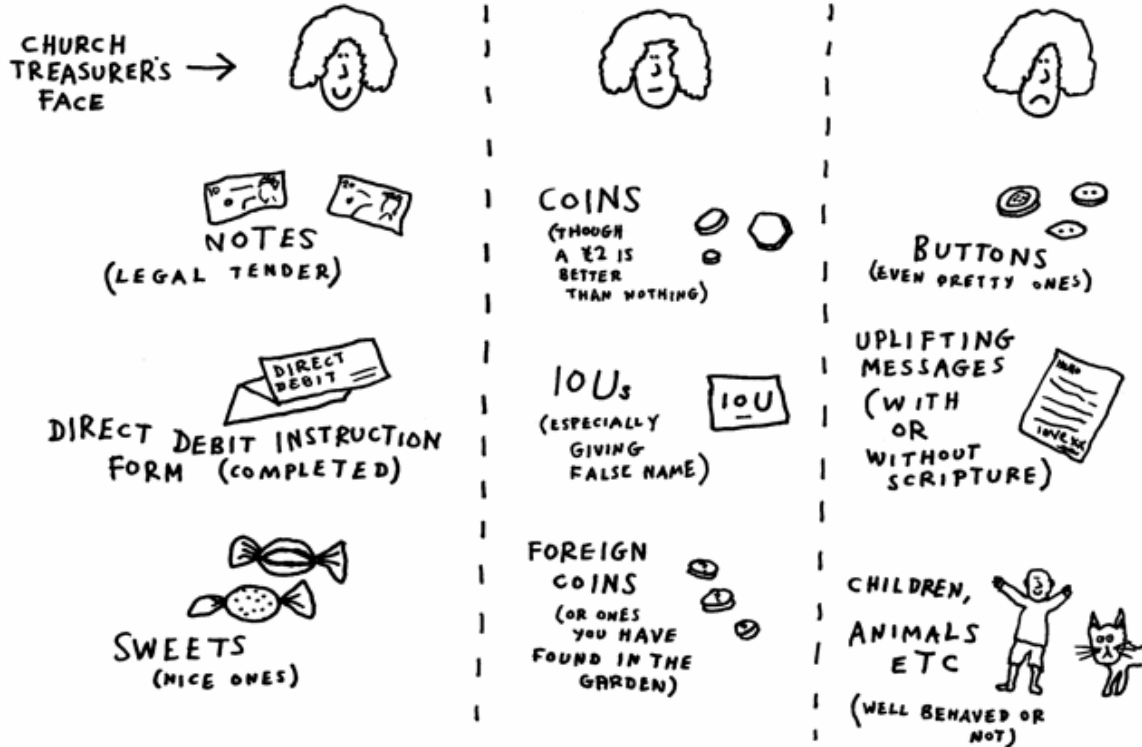 CHURCH
TREASURER'S
FACE
10
20
NOTES
(LEGAL TENDER)
DIRECT
DEBIT
DIRECT DEBIT INSTRUCTION
FORM (COMPLETED)
SWEETS
(NICE ONES)
COINS
(THOUGH
A £2 IS
BETTER
THAN NOTHING)
IOUs
(ESPECIALLY
GIVING
FALSE NAME)
IOU
FOREIGN
COINS
(OR ONES
YOU HAVE
FOUND IN THE
GARDEN)
BUTTONS
(EVEN PRETTY ONES)
UPLIFTING
MESSAGES
(WITH
OR
WITHOUT
SCRIPTURE)
LOVE XX
CHILDREN,
ANIMALS
ETC
(WELL BEHAVED OR
NOT)